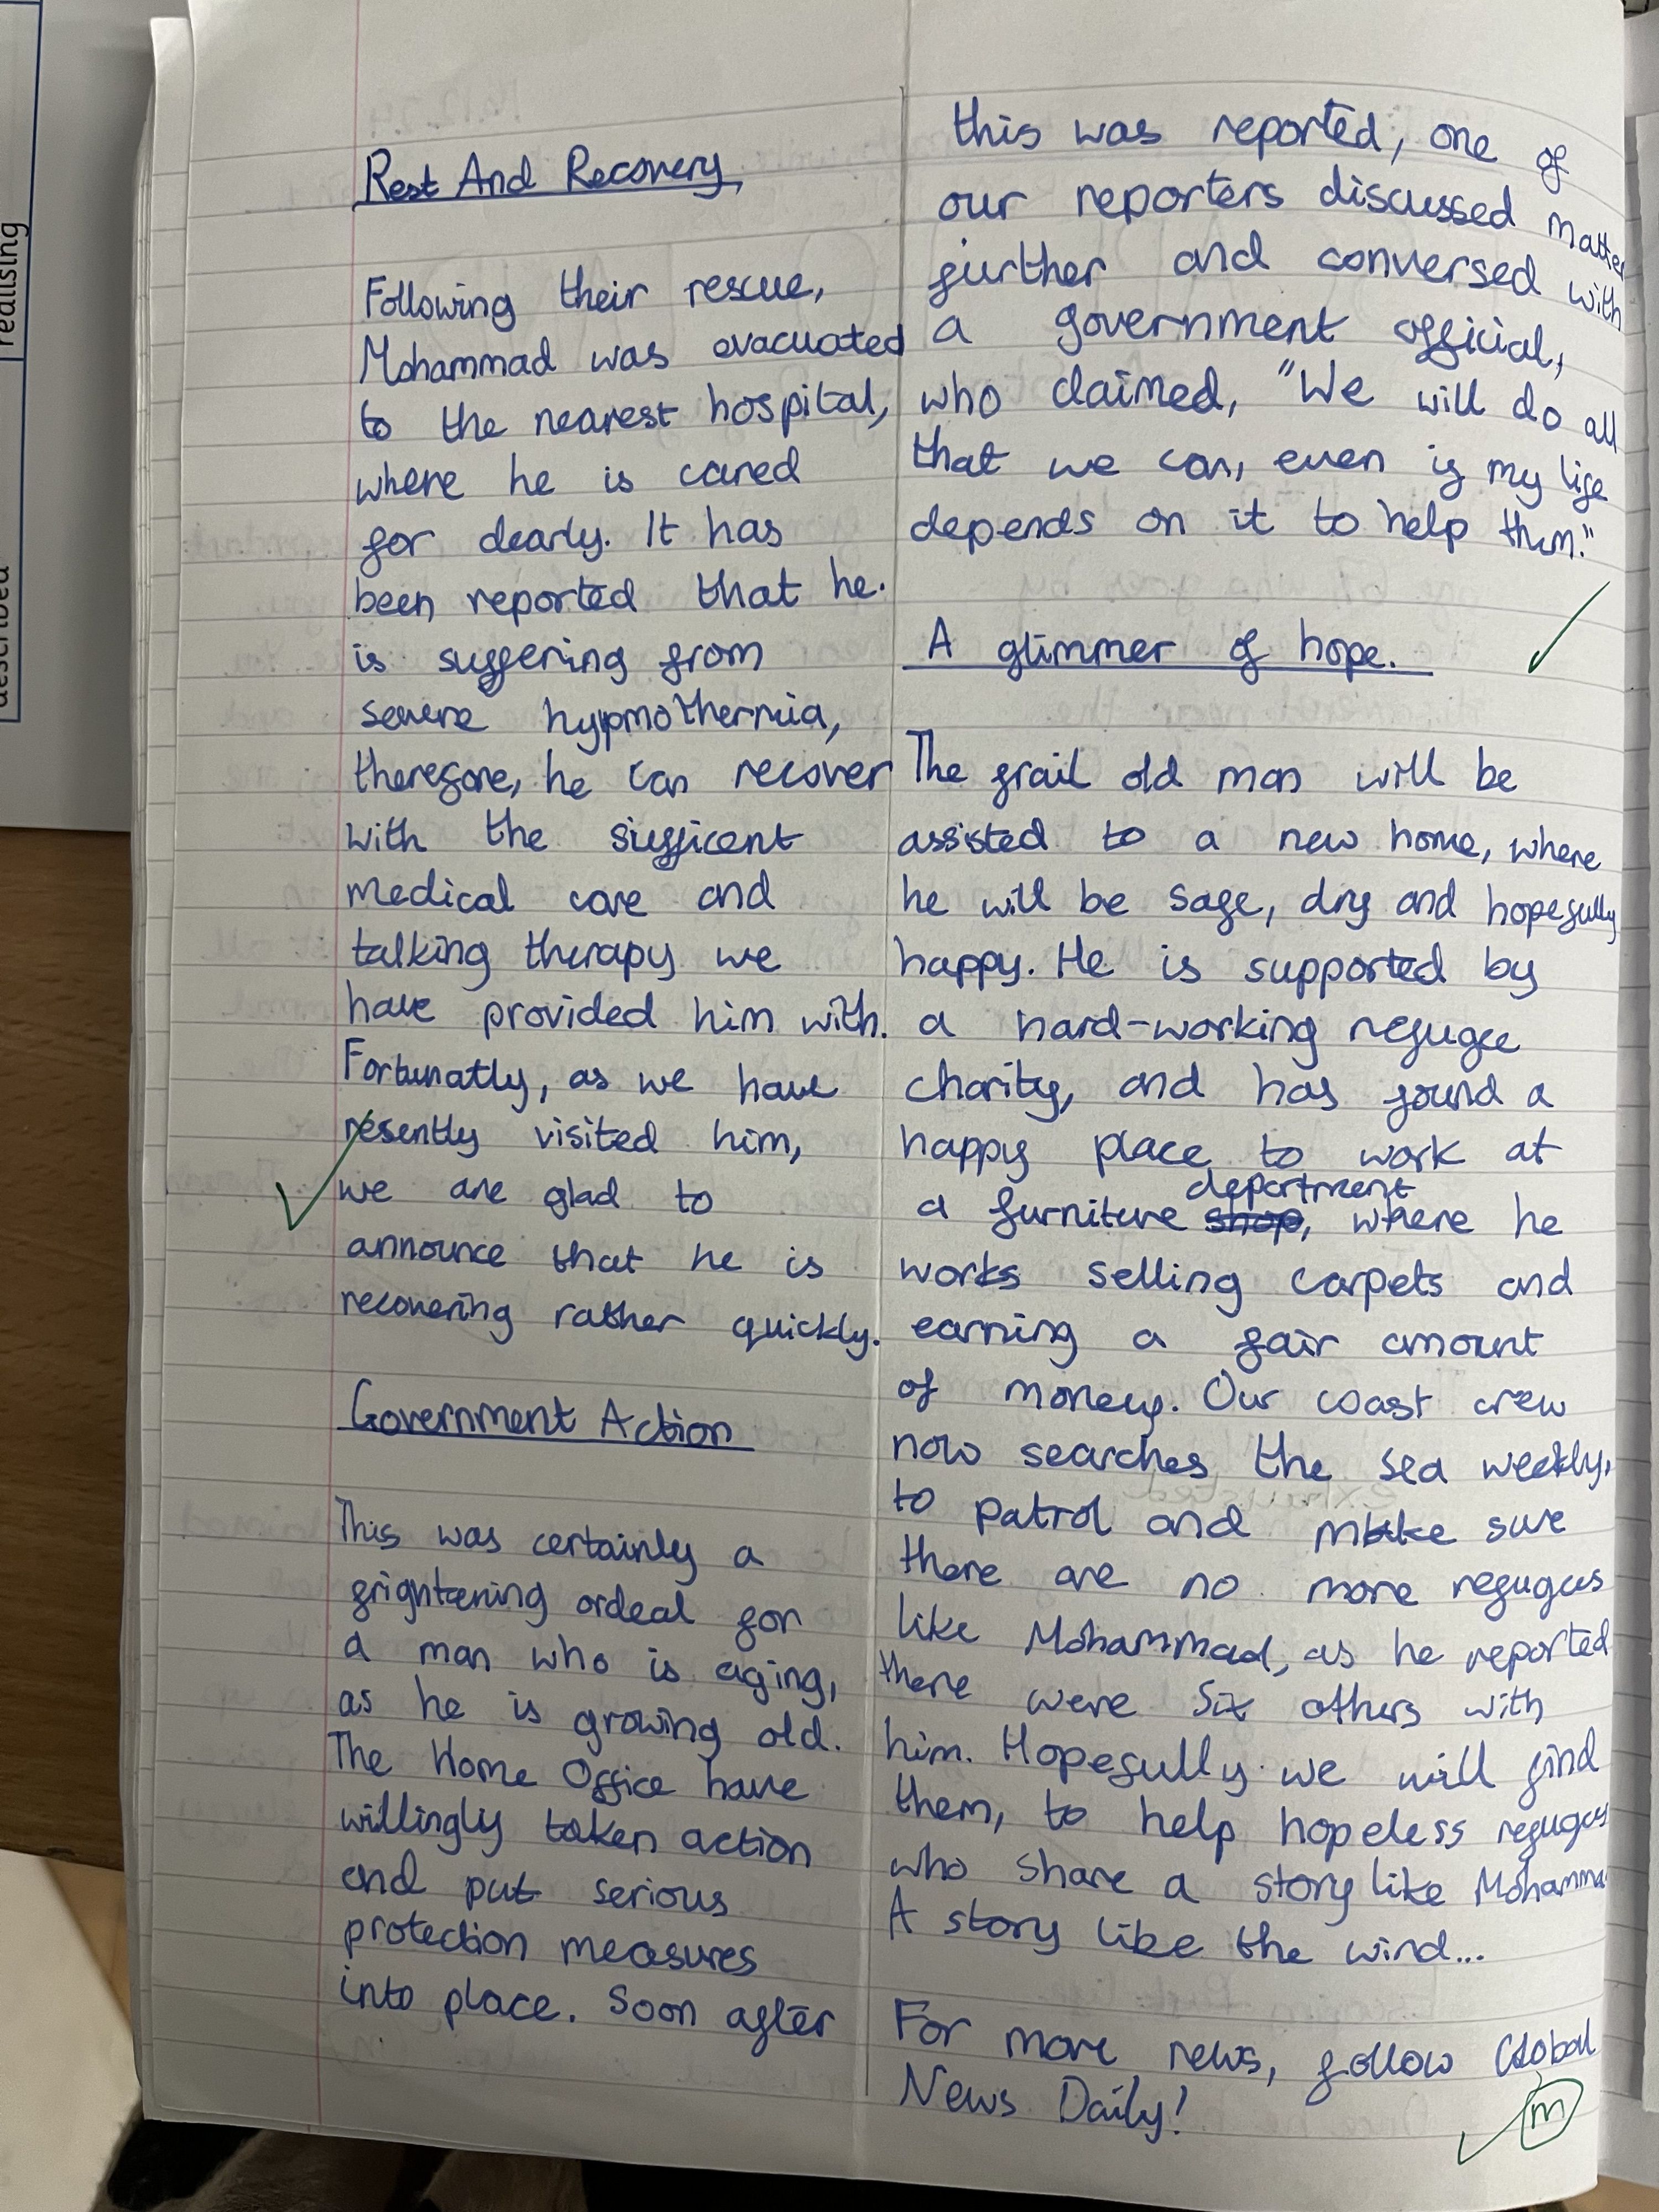 realising
described
Rest And Recovery
Following their rescue,
Mohammad was evacuated
to the nearest hospital,
where he is cared
for dearly. It has
been reported that he
is suffering from
severe hypmothermia,
therefore, he can recover
with the sufficent
medical care and
talking therapy we
have provided him with.
Fortunatly, as we have
resently visited him,
we are glad to
announce that he is
recovering rather quickly.
Government Action
This was certainly a
frightening ordeal for
a man who is aging,
as he is growing old.
The Home Office have
willingly taken action
and put serious
protection measures
into place. Soon after
this was reported, one of
our reporters discussed matter
further and conversed with
a government official,
who claimed, "We will do all
that we can, even if my life
depends on it to help them."
A glimmer of hope.
The frail old man will be
assisted to a new home, where
he will be safe, dry and hopefully
happy. He is supported by
a hard-working refugee
charity, and has found a
happy place to work at
department
a furniture shop, where he
works selling carpets and
earning a fair amount
of money. Our coast crew
now searches the sea weekly,
to patrol and make sure
there are no more refugees
like Mohammad, as he reported
there were six others with
him. Hopefully we will find
them, to help hopeless refugees
who share a story like Mohamma
A story like the wind...
For more news, follow Global
News Daily!
m